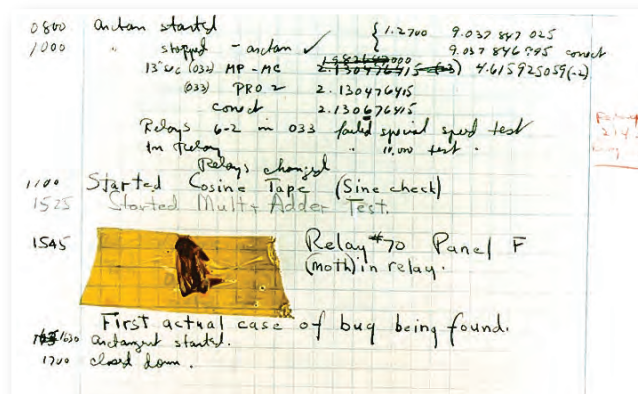 0800 arctan started { 1.2700 9.037 847 025
1000 " stopped - arctan ✓ 9.037 846 995 correct
13"uc (032) MP-MC 2.130476415 (-3) 4.615925059(-2)
(033) PRO 2 2.130476415
correct 2.130676415
Relays 6-2 in 033 failed special speed test
In Relay " 10,000 test.
Relays changed
1100 Started Cosine Tape (Sine check)
1525 Started Mult + Adder Test.
1545 Relay #70 Panel F
(moth) in relay.
First actual case of bug being found.
1630 arctangent started.
1700 closed down.